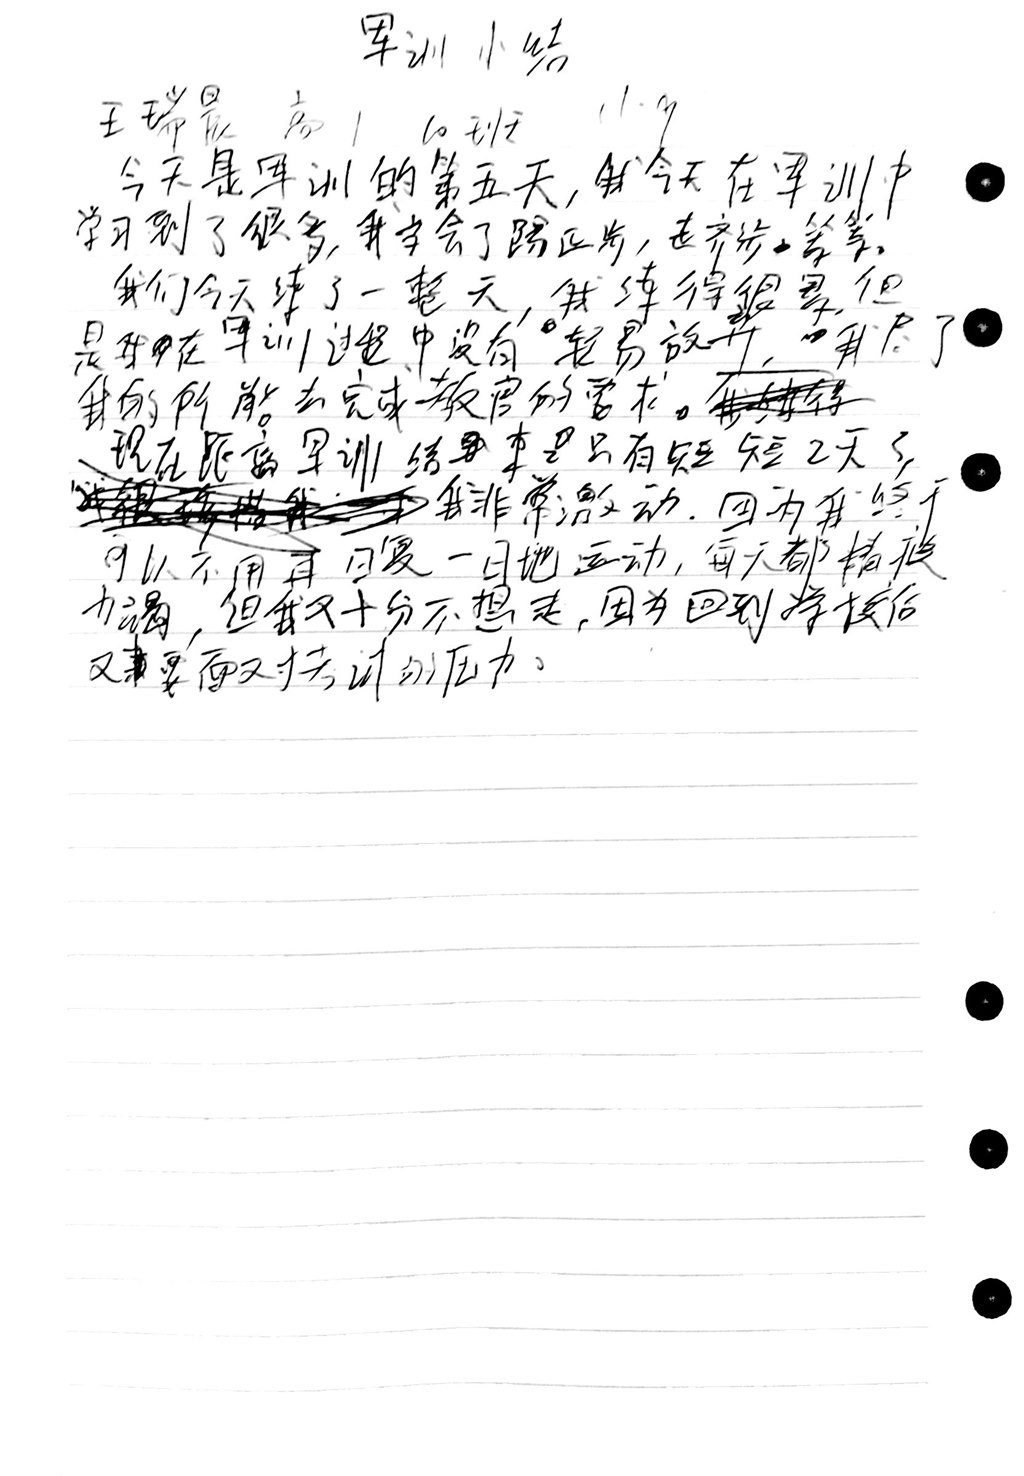 军训小结
王瑞晨 高1 10班
今天是军训的第五天,我今天在军训中
学习到了很多,我学会了踢正步,走齐步。等等。
我们今天练了一整天,我练得很累,但
是我在军训过程中没有“轻易放弃,”我尽了
我的所能。去完成教官的要求。
现在距离军训结束只有短短2天了,
我非常激动.因为我终于
可以不用再日复一日地运动,每天都精疲
力竭,但我又十分不想走,因为回到学校后
又要面对考试的压力。